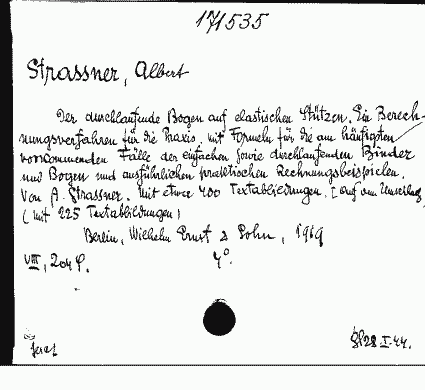 171535
Strassner, Albert
Der durchlaufende Bogen auf elastischen Stützen. Ein Berech-
nungsverfahren für die Praxis, mit Formeln für die am häufigsten
vorkommenden Fälle der einfachen sowie durchlaufenden Binder
und Bogen und ausführlichen praktischen Rechnungsbeispielen.
Von A. Strassner. Mit etwa 400 Textabbildungen. [auf dem Umschlag
(mit 225 Textabbildungen)
Berlin, Wilhelm Ernst & Sohn, 1919
VIII, 204 P. 4°.
28 I.44.